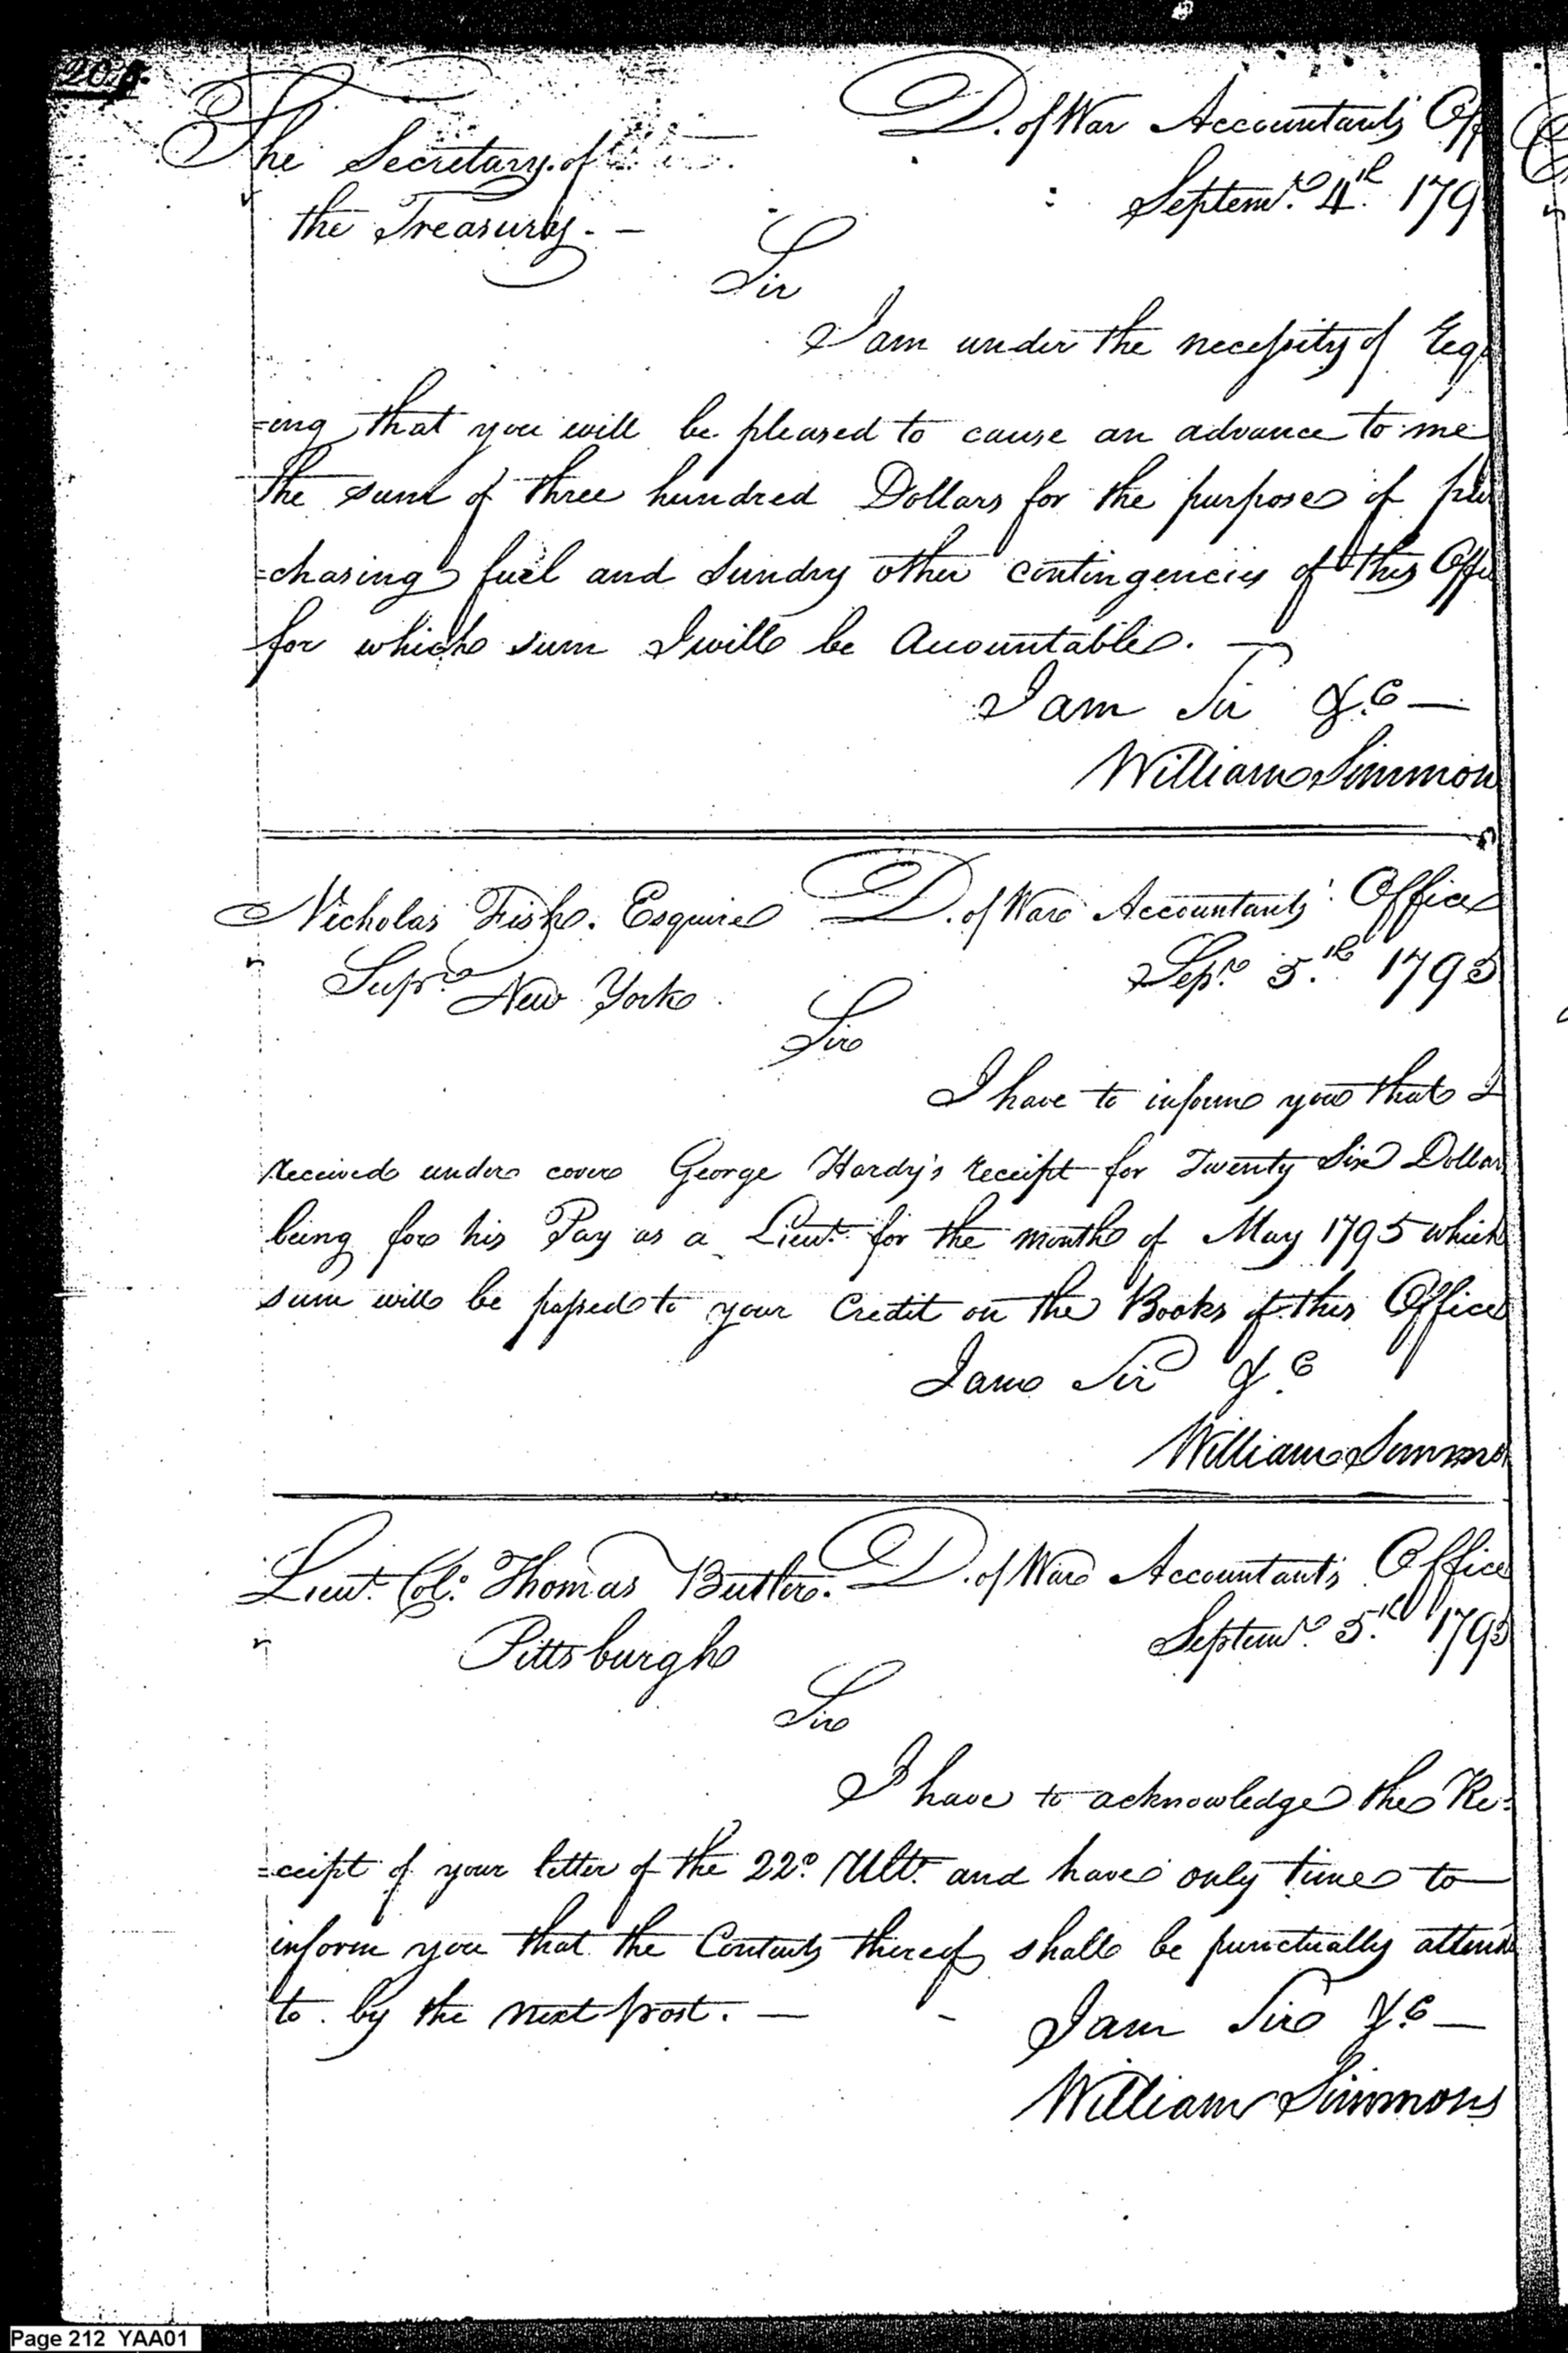 The Secretary of
the Treasury. —
D. of War Accountants Off
Septemr. 4th. 179
Sir
I am under the necessity of Req
=ing that you will be pleased to cause an advance to me
the sum of three hundred Dollars for the purpose of pur
=chasing fuel and Sundry other contingencies of this Offi
for which sum I will be Accountable. —
I am Sir &.c —
William Simmon
Nicholas Fish. Esquire
Supr. New York
D. of War Accountants' Office
Sepr. 5.th 1795
Sir
I have to inform you that I
received under cover George Hardy's receipt for Twenty Six Dollar
being for his Pay as a Lieut. for the month of May 1795 which
sum will be passed to your Credit on the Books of this Office
I am Sir &.c
William Simmo
Lieut. Col. Thomas Butler.
Pittsburgh
D. of War Accountant's Office
Septemr. 5.th 1795
Sir
I have to acknowledge the Re=
=ceipt of your letter of the 22d. Ulto. and have only time to
inform you that the Contents thereof shall be punctually attend
to by the next post. —
I am Sir &.c —
William Simmons
Page 212 YAA01